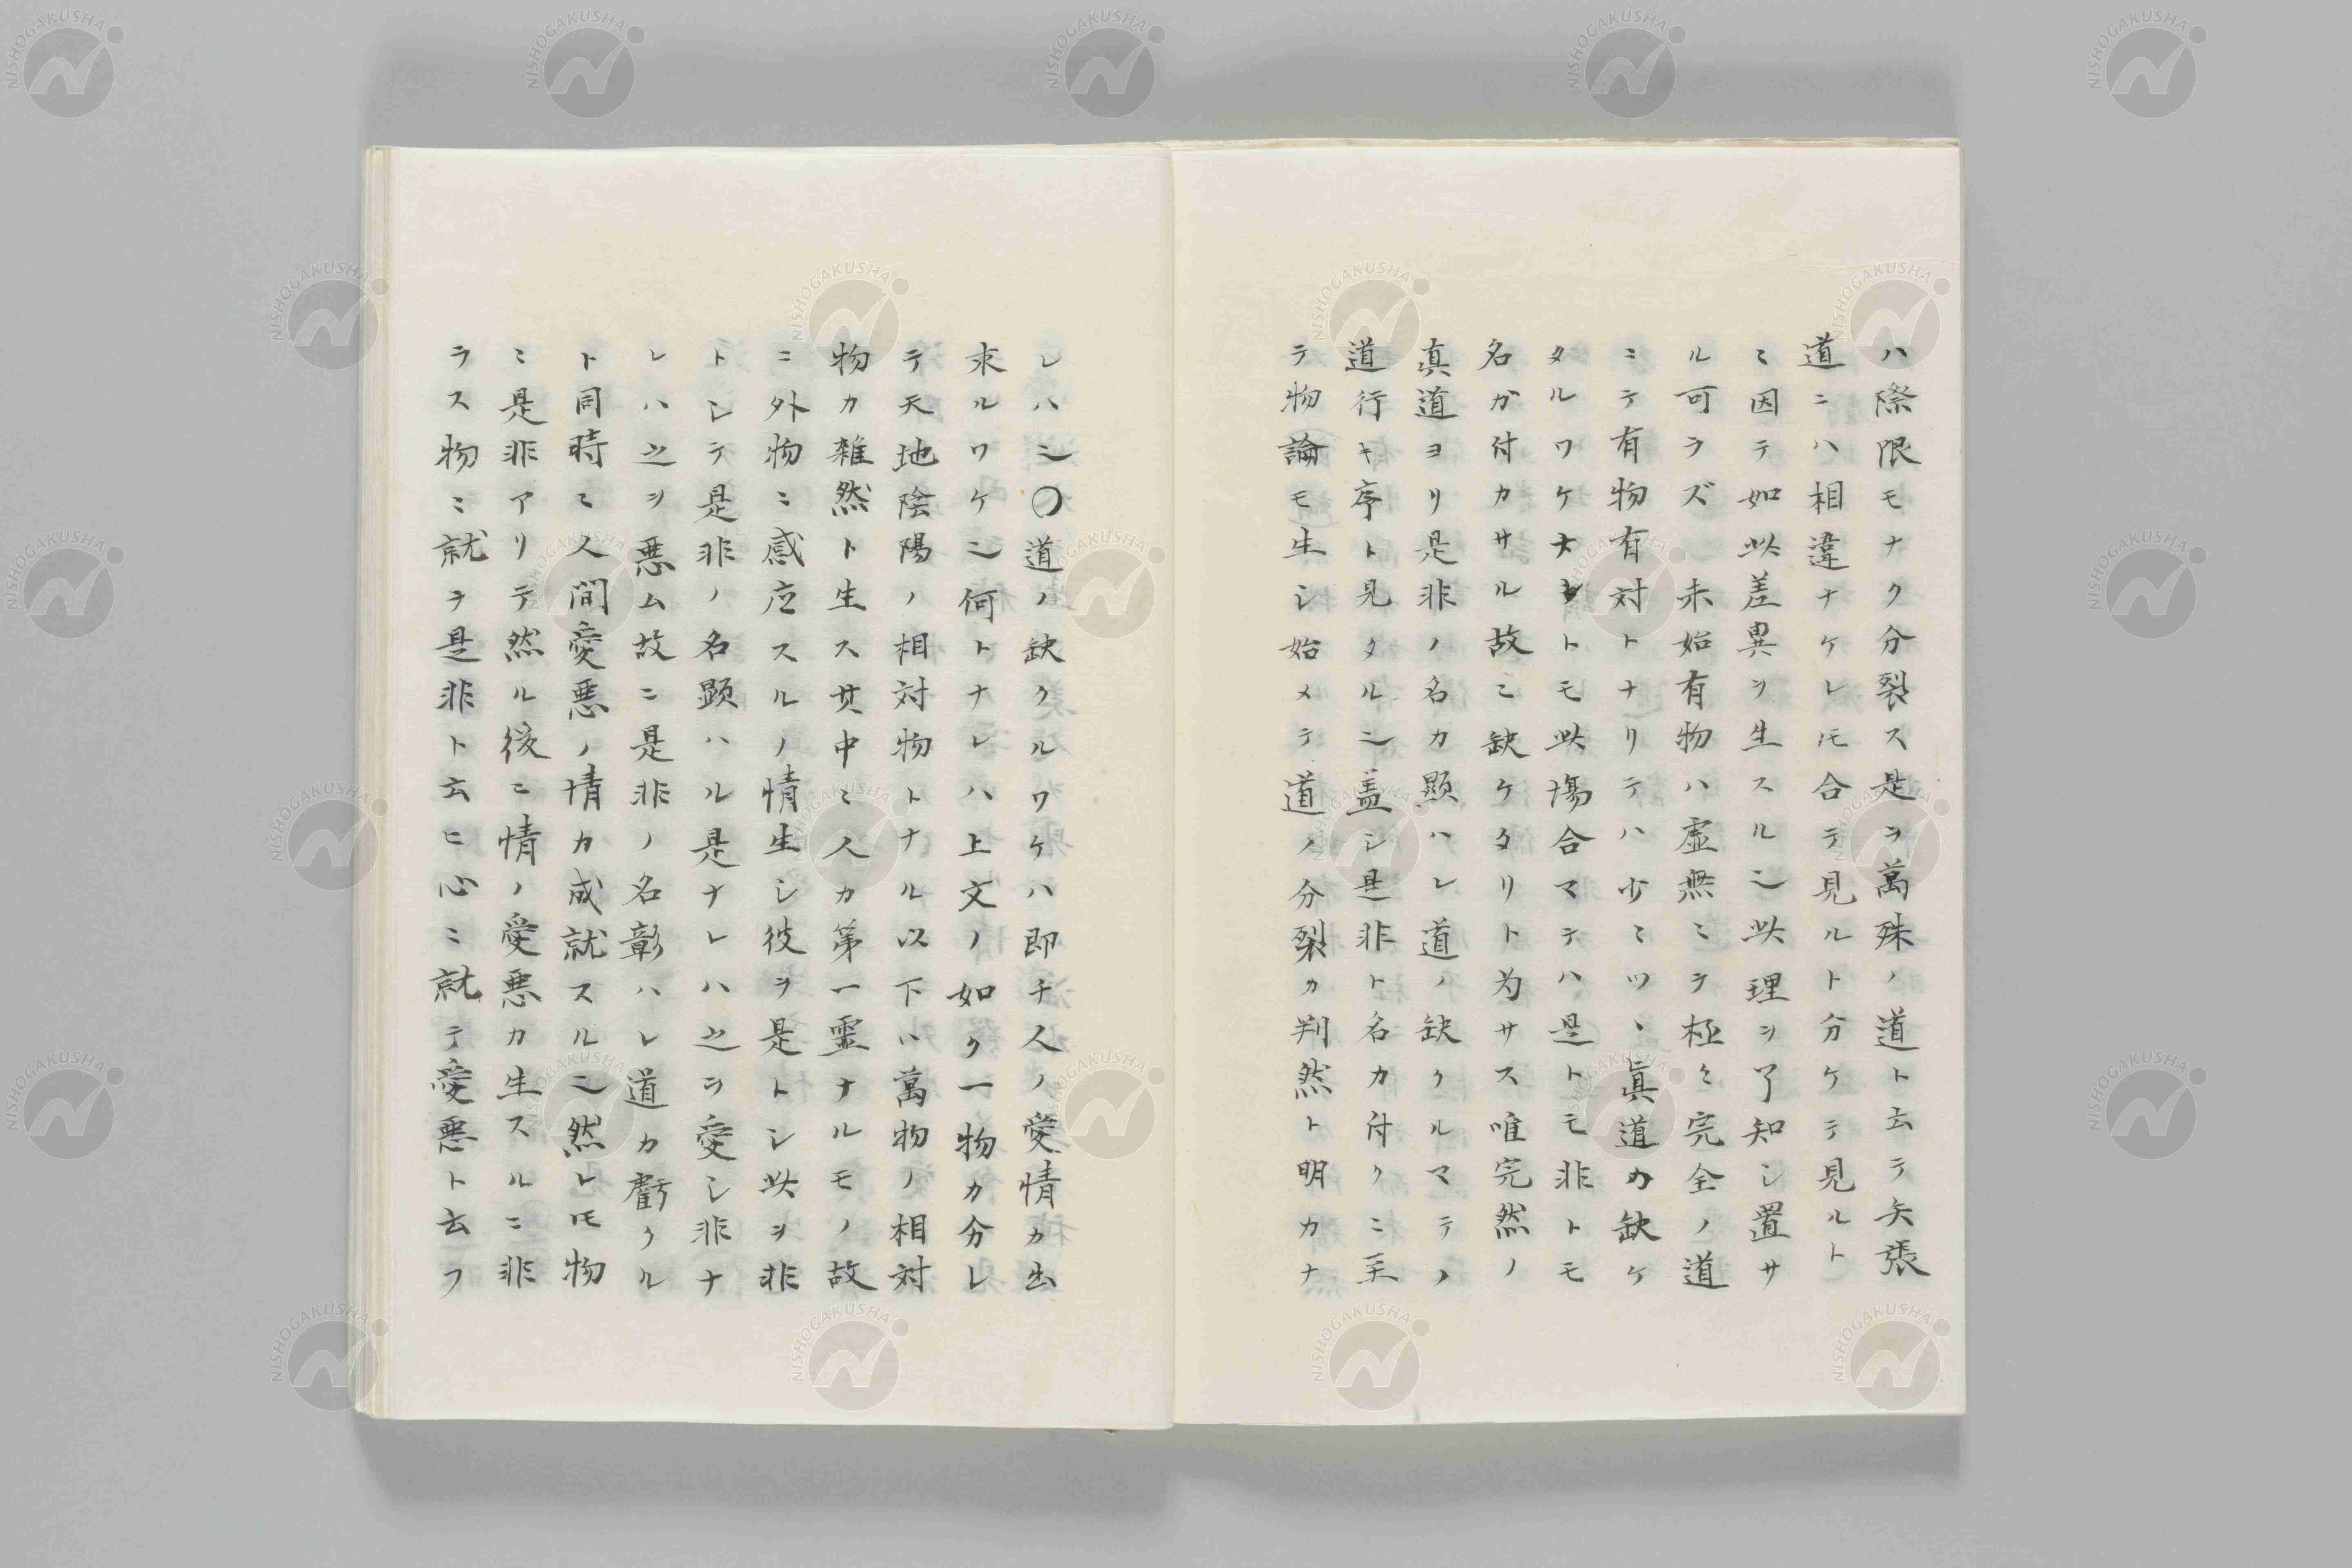 ハ際限モナク分裂ス是ヲ萬殊ノ道ト云テ矢張
道ニハ相違ナケレ𪜈合テ見ルト分ケテ見ルト
ミ因テ如此差異ヲ生スル也此理ヲ了知シ置サ
ル可ラズ未始有物ハ虚無ミヲ極ミ完全ノ道
ニテ有物有対トナリテハ少ミツヽ眞道カ缺ケ
タルワケナレトモ此場合マテハ是トモ非トモ
名カ付カサル故ミ缺ケタリト為サス唯完然ノ
真道ヨリ是非ノ名カ顕ハレ道ノ缺クルマテノ
道行キ序ト見タル也盖シ是非ト名カ付クニ至
テ物論モ生シ始メテ道ノ分裂カ判然ト明カナ
レハ也〇道ノ缺クルワケハ即チ人ノ愛情カ出
来ルワケ也何トナレハ上文ノ如ク一物カ分レ
テ天地陰陽ノ相対物トナル以下ハ萬物ノ相対
物カ雑然ト生ス其中ミ人カ第一靈ナルモノ故
ニ外物ミ感应スルノ情生シ彼ヲ是トシ此ヲ非
トシテ是非ノ名顕ハル是ナレハ之ヲ愛シ非ナ
レハ之ヲ悪ム故ニ是非ノ名彰ハレ道カ虧クル
ト同時ミ人間愛悪ノ情カ成就スル也然レ𪜈物
ミ是非アリテ然ル後ニ情ノ愛悪カ生スルニ非
ラス物ミ就テ是非ト云ヒ心ニ就テ愛悪ト云フ
NISHOGAKUSHA